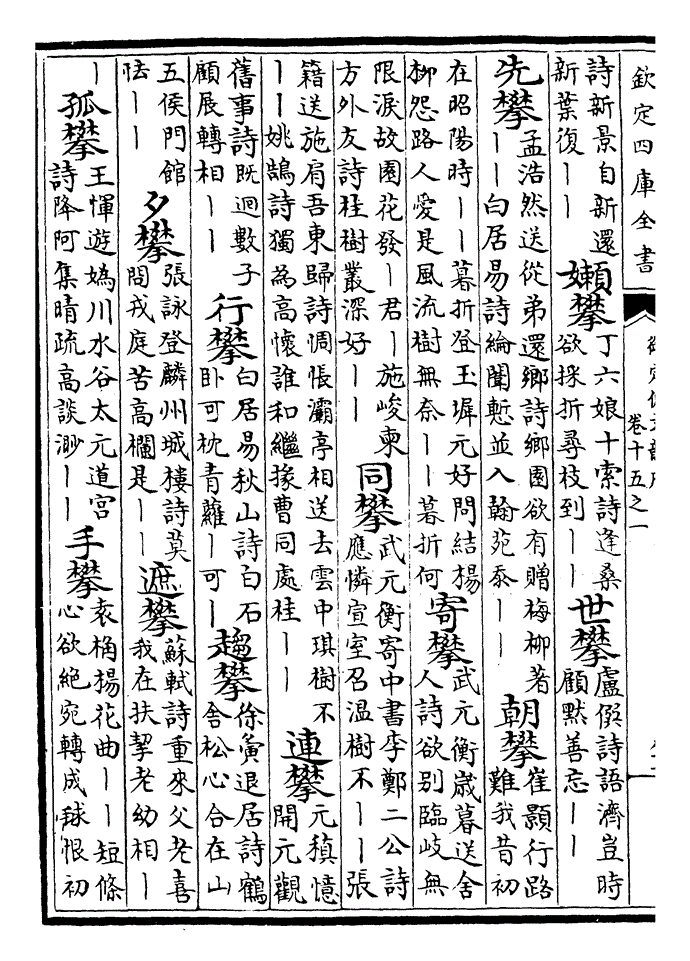 欽定四庫全書
卷十五之一
詩新景自新還
新葉復丨丨
嬾攀
丁六娘十索詩逢桑
欲採折尋枝到丨丨
世攀
盧僎詩語濟豈時
顧默善忘丨丨
先攀
孟浩然送從弟還鄉詩鄉園欲有贈梅柳著
丨丨白居易詩綸闈慙並入翰苑忝丨丨
朝攀
崔顥行路
難我昔初
在昭陽時丨丨暮折登玉墀元好問結楊
柳怨路人愛是風流樹無奈丨丨暮折何
寄攀
武元衡歲暮送舍
人詩欲别臨岐無
限淚故園花發丨君丨施峻柬
方外友詩桂樹叢深好丨丨
同攀
武元衡寄中書李鄭二公詩
應憐宣室召温樹不丨丨張
籍送施肩吾東歸詩惆悵灞亭相送去雲中琪樹不
丨丨姚鵠詩獨為高懷誰和繼掾曹同處桂丨丨
連攀
元稹憶
開元觀
舊事詩既迴數子
顧展轉相丨丨
行攀
白居易秋山詩白石
卧可枕青蘿丨可丨
趨攀
徐夤退居詩鶴
舍松心合在山
五侯門館
怯丨丨
夕攀
張詠登麟州城樓詩莫
問戎庭苦高欄是丨丨
遮攀
蘇軾詩重來父老喜
我在扶挈老幼相丨
丨
孤攀
王惲遊媯川水谷太元道宫
詩降阿集晴疏高談渺丨丨
手攀
袁桷楊花曲丨丨短條
心欲絶宛轉成毬恨初